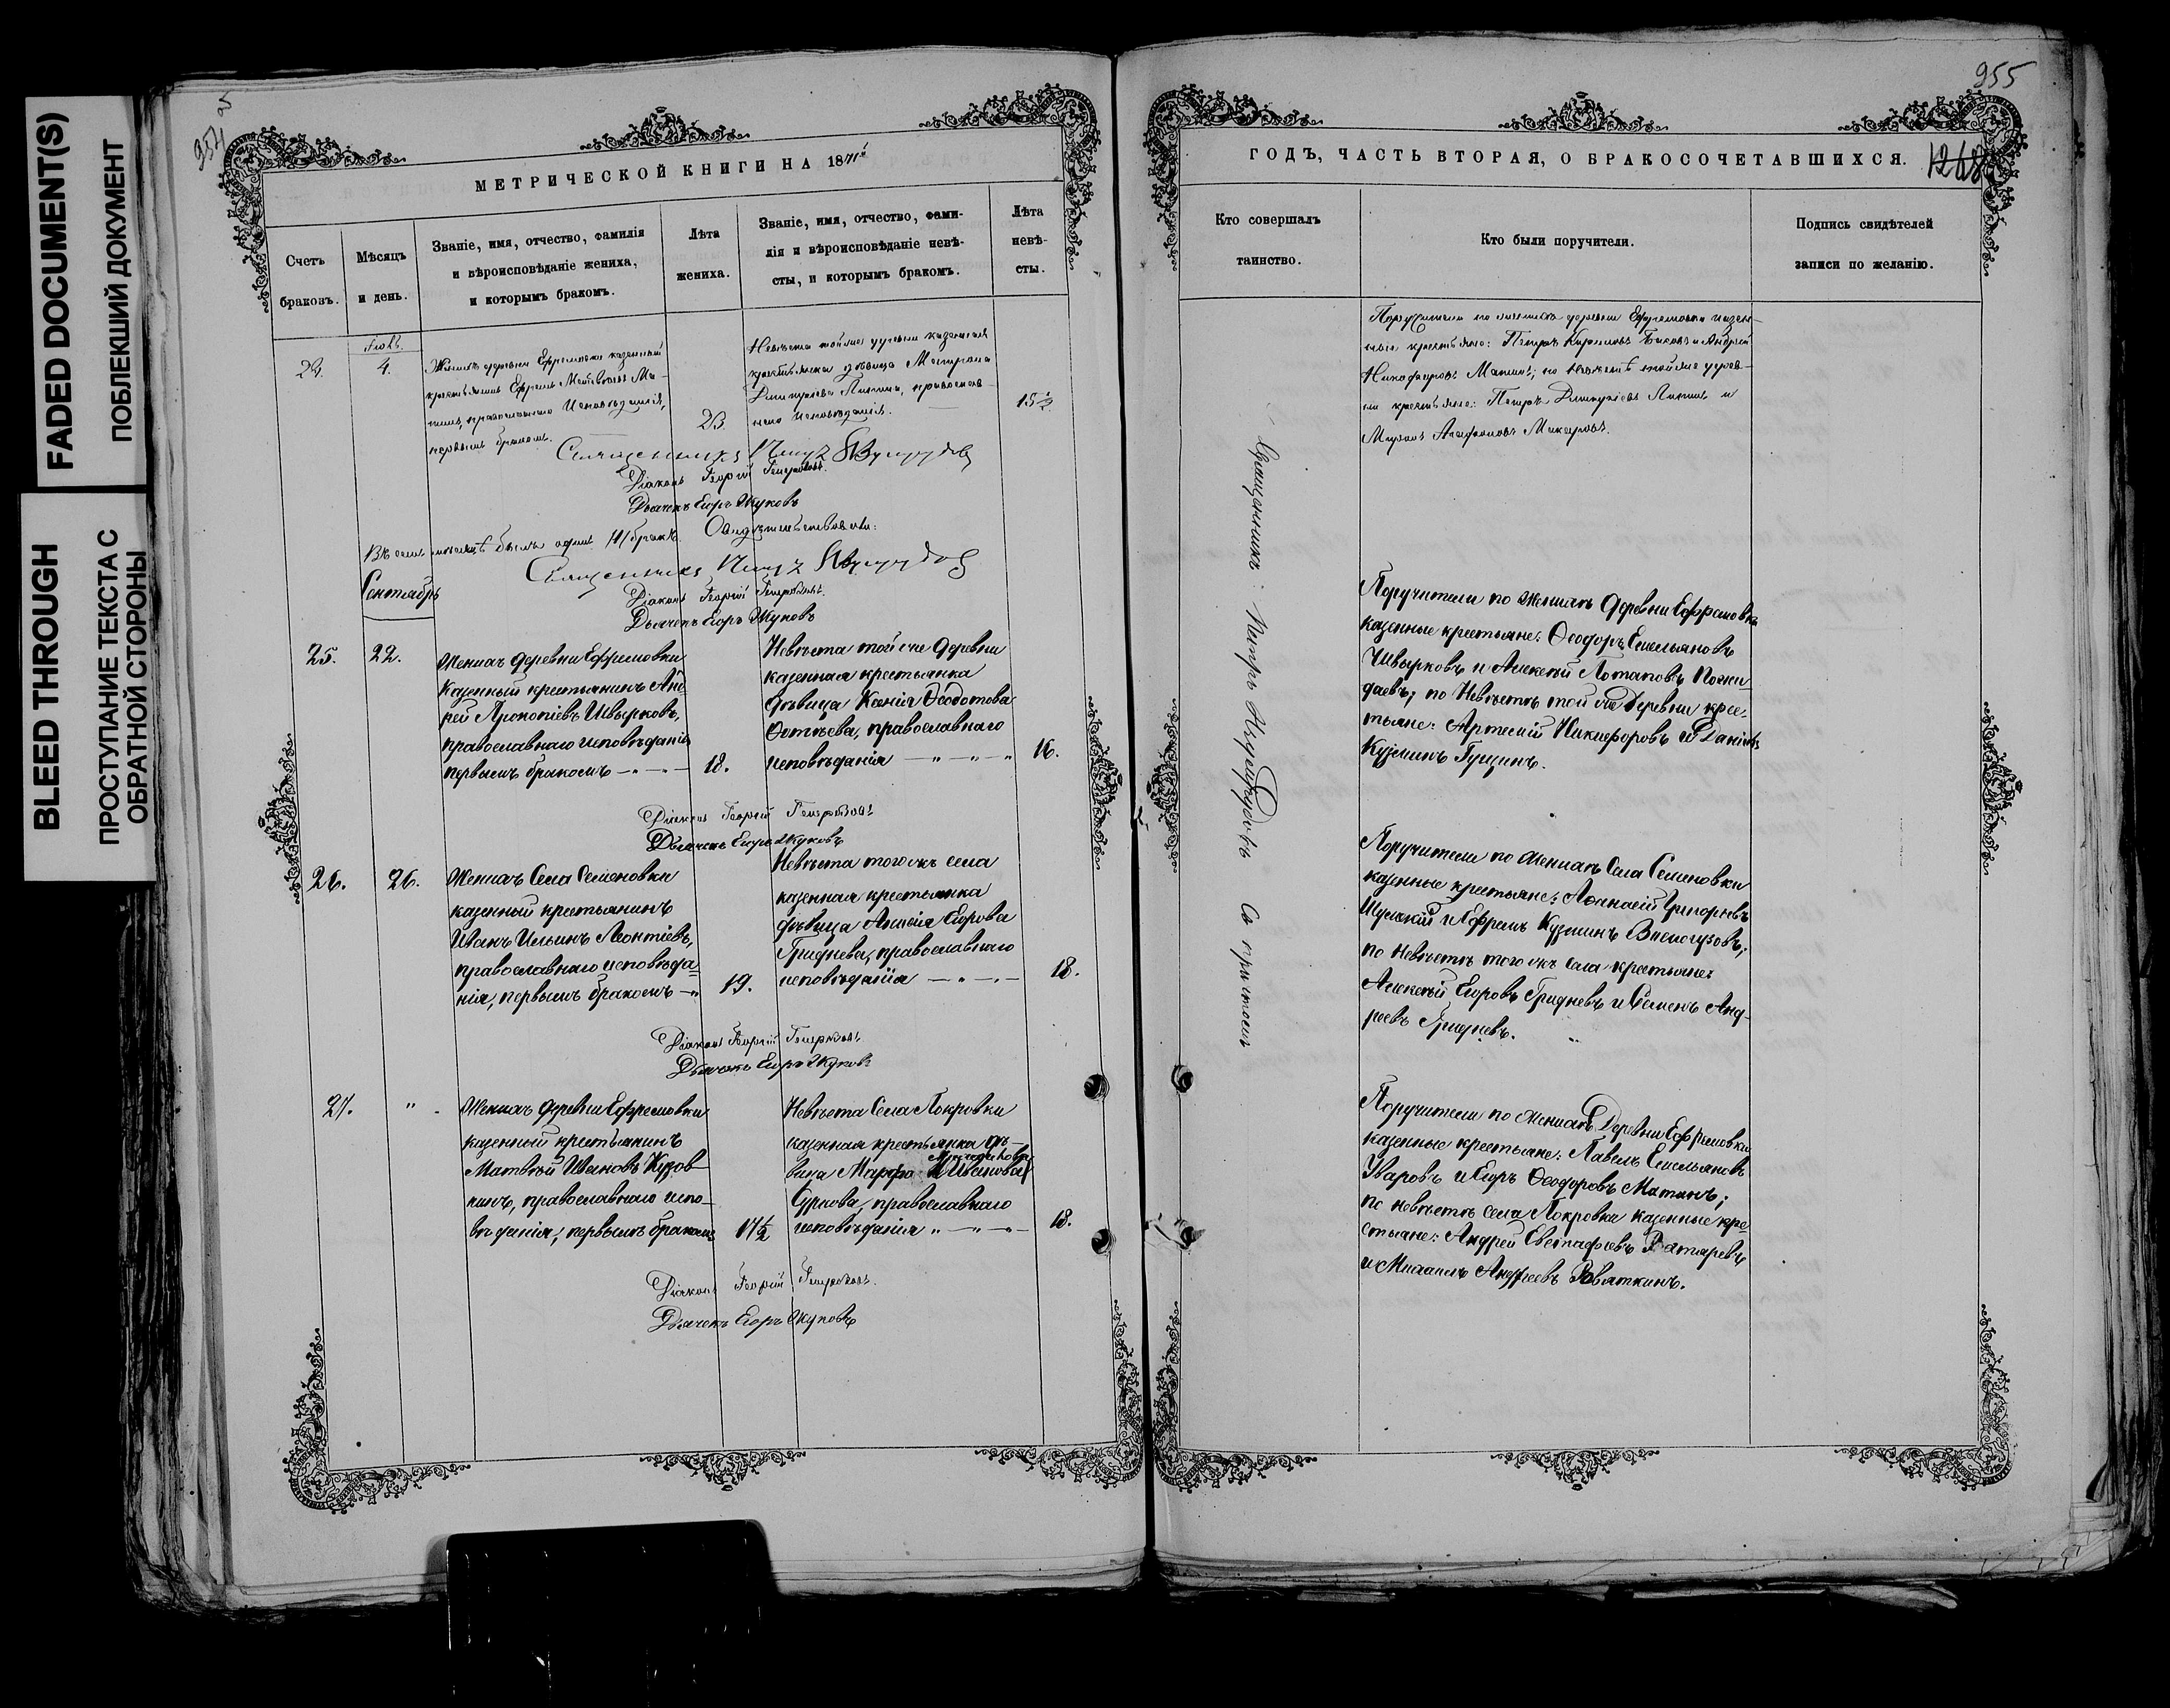 FADED DOCUMENT(S)
ПОБЛЕКШИЙ ДОКУМЕНТ
BLEED THROUGH
ПРОСТУПАНИЕ ТЕКСТА С
ОБРАТНОЙ СТОРОНЫ
МЕТРИЧЕСКОЙ КНИГИ НА 1871й
Счетъ
браковъ.
Мѣсяцъ
и день.
Званіе, имя, отчество, фамилія
и вѣроисповѣданіе жениха,
и которымъ бракомъ.
Лѣта
жениха.
Званіе, имя, отчество, фами-
лія и вѣроисповѣданіе невѣ-
сты, и которымъ бракомъ.
Лѣта
невѣ-
сты.
4.
Женихъ деревни Ефремовки казенный
крестьянинъ Ефремъ Матвѣевъ Ма-
тинъ, православнаго исповѣданія,
первымъ бракомъ.
23.
Невѣста той же деревни казенная
крестьянка дѣвица Матрона
Димитріева Липина, православ-
наго исповѣданія.
15½
Священникъ Петръ
Діаконъ Георгій
Дьячекъ Егоръ Жуковъ
Въ семъ мѣсяцѣ былъ одинъ /1/ бракъ. Свидѣтельствовали:
Священникъ Петръ
Діаконъ Георгій
Дьячекъ Егоръ Жуковъ
Сентябрь
25.
22.
Женихъ деревни Ефремовки
казенный крестьянинъ Анд-
рей Прокопіевъ Швырковъ,
православнаго исповѣданія
первымъ бракомъ — „ — „ —
18.
Невѣста той же деревни
казенная крестьянка
дѣвица Ксенія Ѳеодотова
православнаго
исповѣданія — „ — „ — „
16.
Діаконъ Георгій
Дьячекъ Егоръ Жуковъ
26.
26.
Женихъ Села Семеновки
казенный крестьянинъ
Иванъ Ильинъ Леонтіевъ,
православнаго исповѣда-
нія, первымъ бракомъ — „
19.
Невѣста того жъ села
казенная крестьянка
дѣвица Анисія Егорова
Гриднева, православнаго
исповѣданія — „ — „ —
18.
Діаконъ Георгій
Дьячекъ Егоръ Жуковъ
27.
„
Женихъ деревни Ефремовки
казенный крестьянинъ
Матвѣй Ивановъ Кузов-
кинъ, православнаго испо-
вѣданія, первымъ бракомъ
17½
Невѣста Села Покровки
казенная крестьянка дѣ-
вица Марфа Иванова
православнаго
исповѣданія „ — „ — „ —
18.
Діаконъ Георгій
Дьячекъ Егоръ Жуковъ
955
ГОДЪ, ЧАСТЬ ВТОРАЯ, О БРАКОСОЧЕТАВШИХСЯ.
1268
Кто совершалъ
таинство.
Кто были поручители.
Подпись свидѣтелей
записи по желанію.
Священникъ: Петръ Съ причтомъ
Поручители по женихѣ деревни Ефремовки казен-
ные крестьяне: Петръ Кириловъ Быковъ и Андрей
Никифоровъ Матинъ; по невѣстѣ той же дерев-
ни крестьяне: Петръ Димитріевъ Липинъ и
Миронъ Агафоновъ Макаровъ.
Поручители по женихѣ деревни Ефремовки
казенные крестьяне: Ѳеодоръ Емельяновъ
Швырковъ и Алексѣй Потаповъ Пожи-
даевъ; по невѣстѣ той же деревни крес-
тьяне: Артемій Никифоровъ и Даніилъ
Кузминъ Гущинъ.
Поручители по женихѣ Села Семеновки
казенные крестьяне: Аѳанасій Григорьевъ
Шульскій и Ефремъ Кузминъ
по невѣстѣ того жъ села крестьяне:
Алексѣй Егоровъ Гридневъ и Семенъ Анд-
реевъ Гридневъ.
Поручители по женихѣ Деревни Ефремовки
казенные крестьяне: Павелъ Емельяновъ
Уваровъ и Егоръ Ѳеодоровъ Матинъ;
по невѣстѣ села Покровки казенные кре-
стьяне: Андрей Евстафіевъ
и Михаилъ Андреевъ